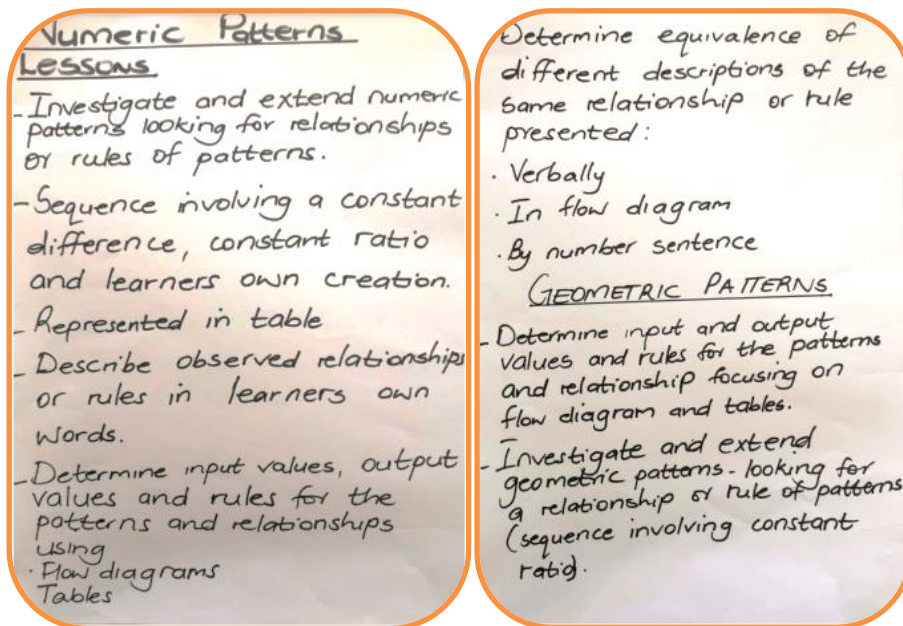 Numeric Patterns
Lessons
- Investigate and extend numeric
patterns looking for relationships
or rules of patterns.
- Sequence involving a constant
difference, constant ratio
and learners own creation.
- Represented in table
- Describe observed relationships
or rules in learners own
words.
- Determine input values, output
values and rules for the
patterns and relationships
using
· Flow diagrams
Tables
Determine equivalence of
different descriptions of the
same relationship or rule
presented:
· Verbally
· In flow diagram
· By number sentence
GEOMETRIC PATTERNS
- Determine input and output
values and rules for the patterns
and relationship focusing on
flow diagram and tables.
- Investigate and extend
geometric patterns - looking for
a relationship or rule of patterns
(sequence involving constant
ratio).